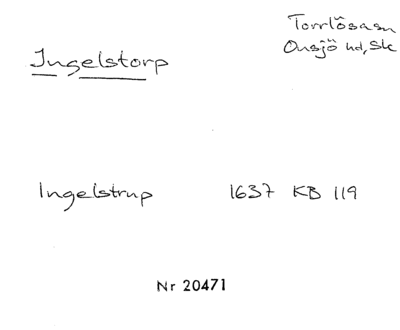 Torrlösa sn
Onsjö hd, Sk
Ingelstorp
Ingelstrup 1637 KB 119
Nr 20471